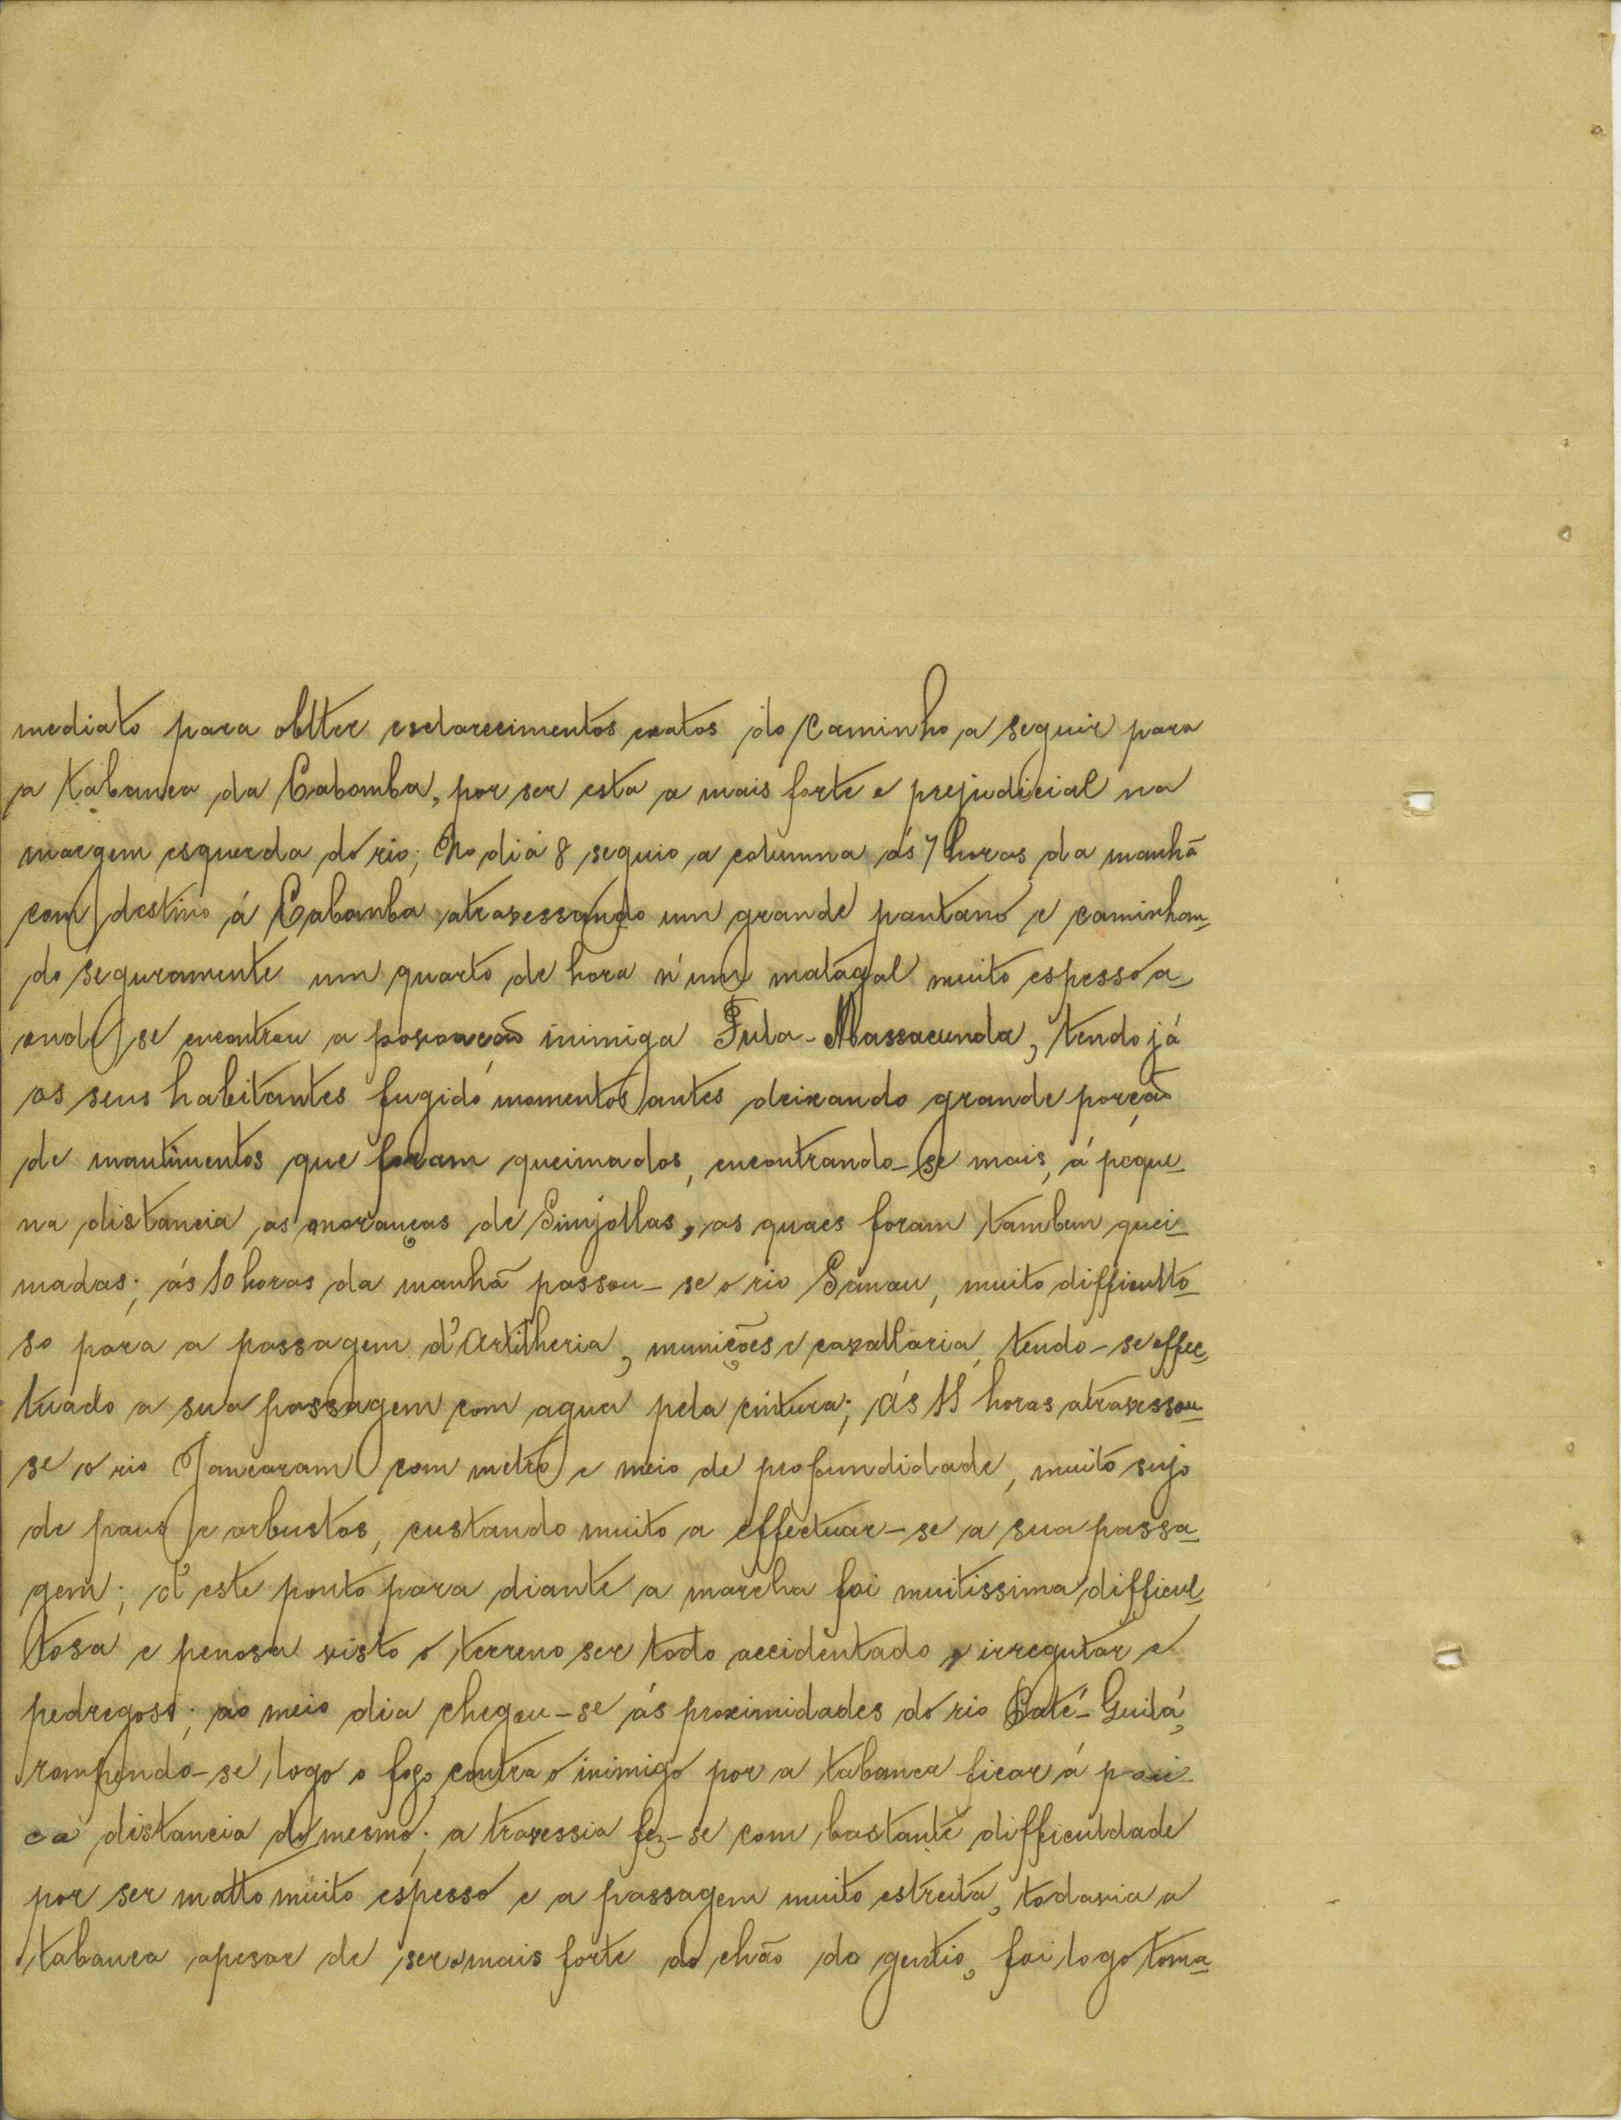 mediato para obtter esclarecimentos exatos do caminho a seguir para
a tabanca da Cabomba, por ser esta a mais forte e prejudicial na
margem esquerda do rio; No dia 8 seguio a columna ás 7 horas da manhã
com destino á Cabamba atravessando um grande pantano e caminhan-
do seguramente um quarto de hora n'um matagal muito espesso a-
onde se encontrou a povoação inimiga Fula-Massacunda, tendo já
os seus habitantes fugido momentos antes deixando grande porção
de mantimentos que foram queimados, encontrando-se mais, á peque-
na distancia as moranças de Sinjollas, as quaes foram tambem quei-
madas; ás 10 horas da manhã passou-se o rio Sanau, muito difficulto-
so para a passagem d'Artilheria, munições e cavallaria, tendo-se effec-
tuado a sua passagem com agua pela cintura; ás 11 horas atravessou-
se o rio Jancaram com metro e meio de profundidade, muito sujo
de paus e arbustos, custando muito a effectuar-se a sua passa-
gem; d'este ponto para diante a marcha foi muitissima difficul-
tosa e penosa visto o terreno ser todo accidentado e irregular e
pedregoso; ao meio dia chegou-se ás proximidades do rio Saté-Guitá,
rompendo-se logo o fogo contra o inimigo por a tabanca ficar á pou-
ca distancia do mesmo; a travessia fez-se com bastante difficuldade
por ser matto muito espesso e a passagem muito estreita, todavia a
tabanca apesar de ser a mais forte do chão do gentio, foi logo toma-